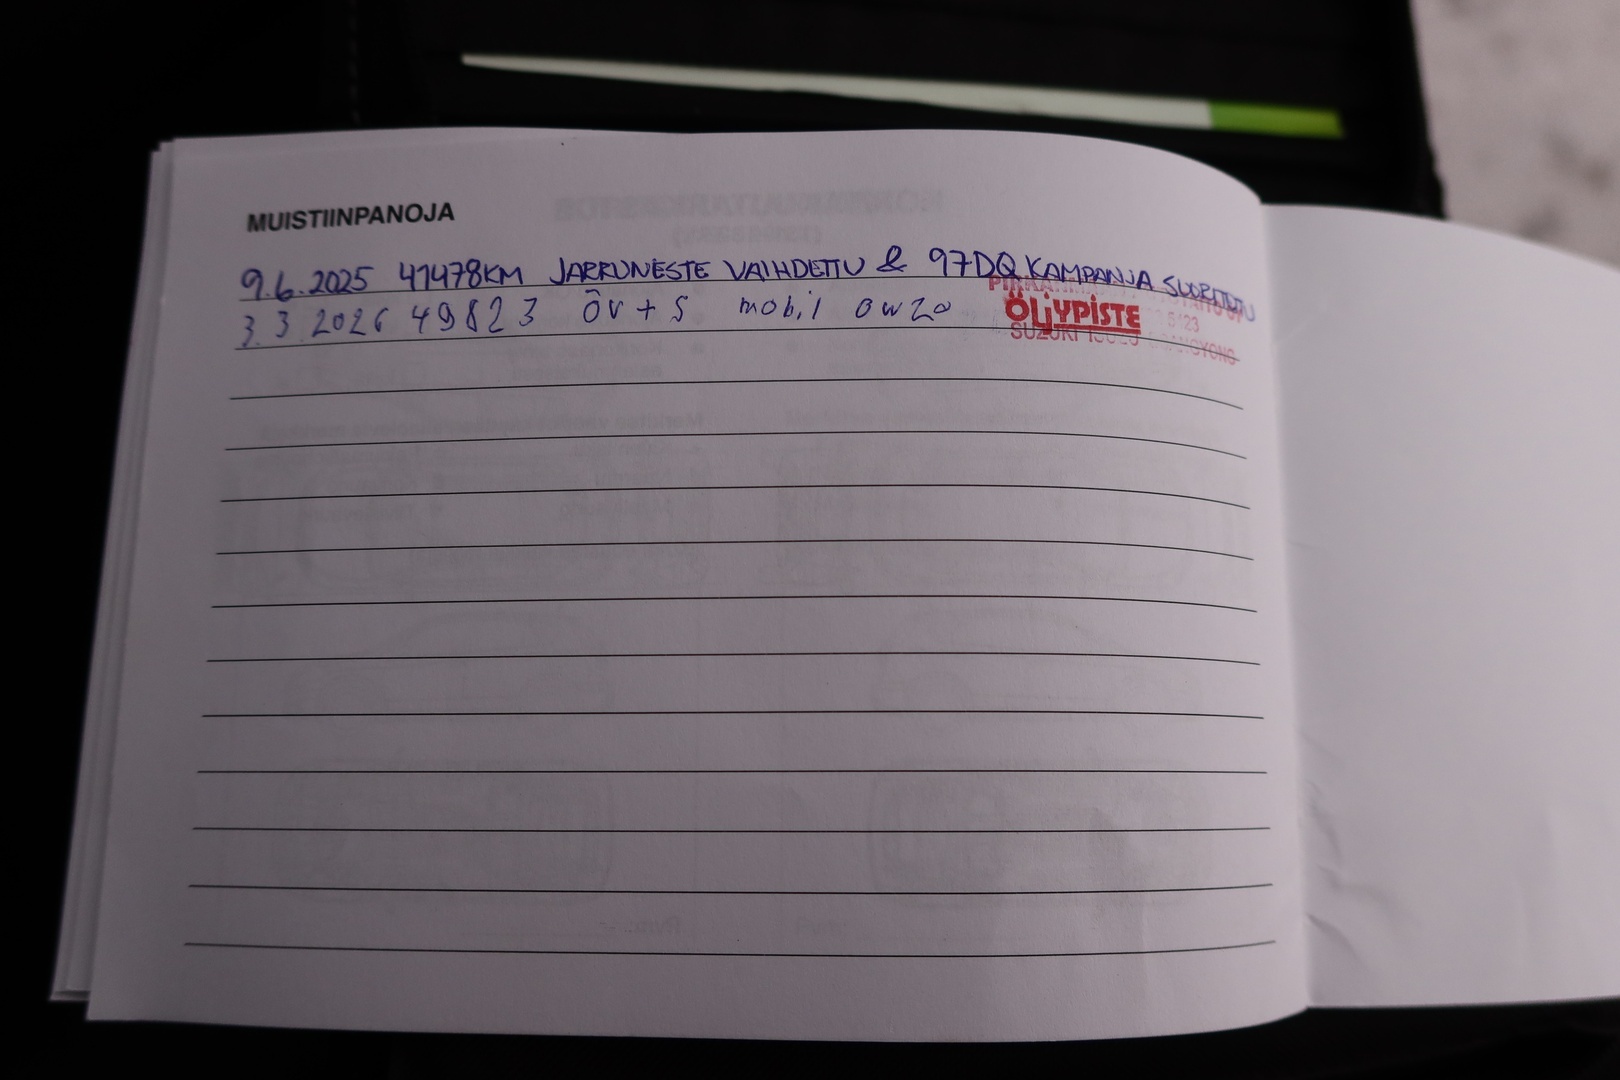 MUISTIINPANOJA
9.6.2025 41478KM JARRUNESTE VAIHDETTU & 97DQ KAMPANJA SUORITETTU
3.3.2026 49823 ÖV + S mobil 0w20
ÖLJYPISTE
SUZUKI ISUZU